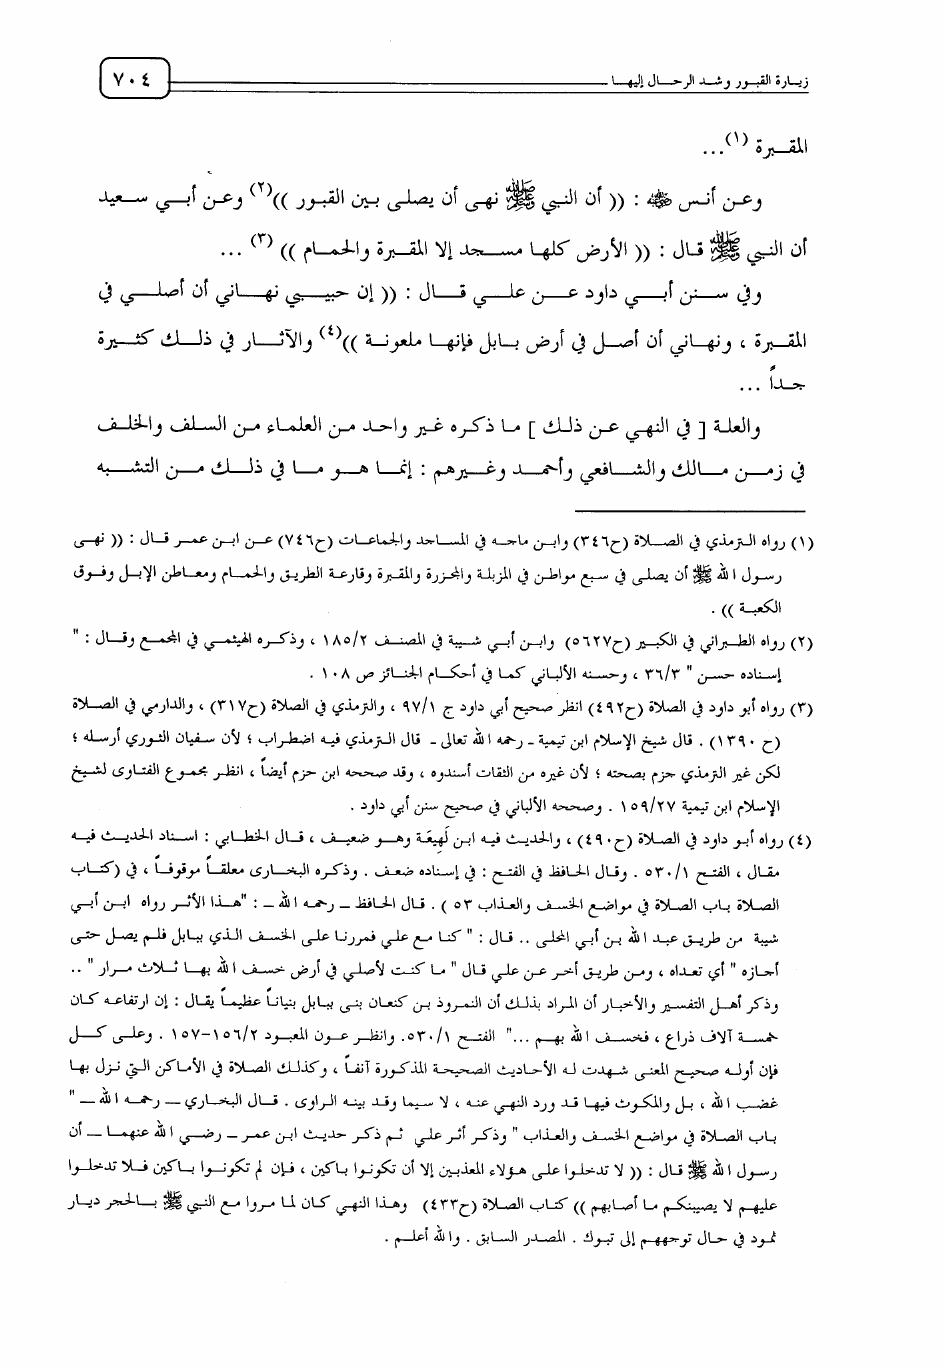 زيارة القبور وشد الرحال إليها ٧٠٤
المقبرة (١)...
وعن أنس ﷺ : (( أن النبي ﷺ نهى أن يصلى بين القبور ))(٢) وعن أبي سعيد
أن النبي ﷺ قال : (( الأرض كلها مسجد إلا المقبرة والحمام )) (٣) ...
وفي سنن أبي داود عن علي قال : (( إن حبيبي نهاني أن أصلي في
المقبرة ، ونهاني أن أصل في أرض بابل فإنها ملعونة ))(٤) والآثار في ذلك كثيرة
جداً ...
والعلة [ في النهي عن ذلك ] ما ذكره غير واحد من العلماء من السلف والخلف
في زمن مالك والشافعي وأحمد وغيرهم : إنما هو ما في ذلك من التشبه
(١) رواه الترمذي في الصلاة (ح٣٤٦) وابن ماجه في المساجد والجماعات (ح٧٤٦) عن ابن عمر قال : (( نهى
رسول الله ﷺ أن يصلى في سبع مواطن في المزبلة والمجزرة والمقبرة وقارعة الطريق والحمام ومعاطن الإبل وفوق
الكعبة )) .
(٢) رواه الطبراني في الكبير (ح٥٦٢٧) وابن أبي شيبة في المصنف ١٨٥/٢ ، وذكره الهيثمي في المجمع وقال : "
إسناده حسن " ٣٦/٣ ، وحسنه الألباني كما في أحكام الجنائز ص ١٠٨ .
(٣) رواه أبو داود في الصلاة (ح٤٩٢) انظر صحيح أبي داود ج ٩٧/١ ، والترمذي في الصلاة (ح٣١٧) ، والدارمي في الصلاة
(ح ١٣٩٠) . قال شيخ الإسلام ابن تيمية ـ رحمه الله تعالى ـ قال الترمذي فيه اضطراب ؛ لأن سفيان الثوري أرسله ؛
لكن غير الترمذي جزم بصحته ؛ لأن غيره من الثقات أسندوه ، وقد صححه ابن حزم أيضاً ، انظر مجموع الفتاوى لشيخ
الإسلام ابن تيمية ١٥٩/٢٧ . وصححه الألباني في صحيح سنن أبي داود .
(٤) رواه أبو داود في الصلاة (ح٤٩٠) ، والحديث فيه ابن لَهِيعَة وهو ضعيف ، قال الخطابي : اسناد الحديث فيه
مقال ، الفتح ٥٣٠/١ . وقال الحافظ في الفتح : في إسناده ضعف . وذكره البخارى معلقاً موقوفاً ، في (كتاب
الصلاة باب الصلاة في مواضع الخسف والعذاب ٥٣ ) . قال الحافظ ـ رحمه الله ـ : "هذا الأثر رواه ابن أبي
شيبة من طريق عبد الله بن أبي المحلى .. قال : " كنا مع علي فمررنا على الخسف الذي ببابل فلم يصل حتى
أجازه " أي تعداه ، ومن طريق أخر عن علي قال " ما كنت لأصلي في أرض خسف الله بها ثلاث مرار " ..
وذكر أهل التفسير والأخبار أن المراد بذلك أن النمروذ بن كنعان بنى ببابل بنياناً عظيماً يقال : إن ارتفاعه كان
خمسة آلاف ذراع ، فخسف الله بهم ..." الفتح ٥٣٠/١. وانظر عون المعبود ١٥٦/٢-١٥٧ . وعلى كل
فإن أوله صحيح المعنى شهدت له الأحاديث الصحيحة المذكورة آنفاً ، وكذلك الصلاة في الأماكن التي نزل بها
غضب الله ، بل والمكوث فيها قد ورد النهي عنه ، لا سيما وقد بينه الراوى . قال البخاري ـ رحمه الله ـ "
باب الصلاة في مواضع الخسف والعذاب " وذكر أثر علي ثم ذكر حديث ابن عمر ـ رضي الله عنهما ـ أن
رسول الله ﷺ قال : (( لا تدخلوا على هؤلاء المعذبين إلا أن تكونوا باكين ، فإن لم تكونوا باكين فلا تدخلوا
عليهم لا يصيبنكم ما أصابهم )) كتاب الصلاة (ح٤٣٣) وهذا النهي كان لما مروا مع النبي ﷺ بالحجر ديار
ثمود في حال توجههم إلى تبوك . المصدر السابق . والله أعلم .